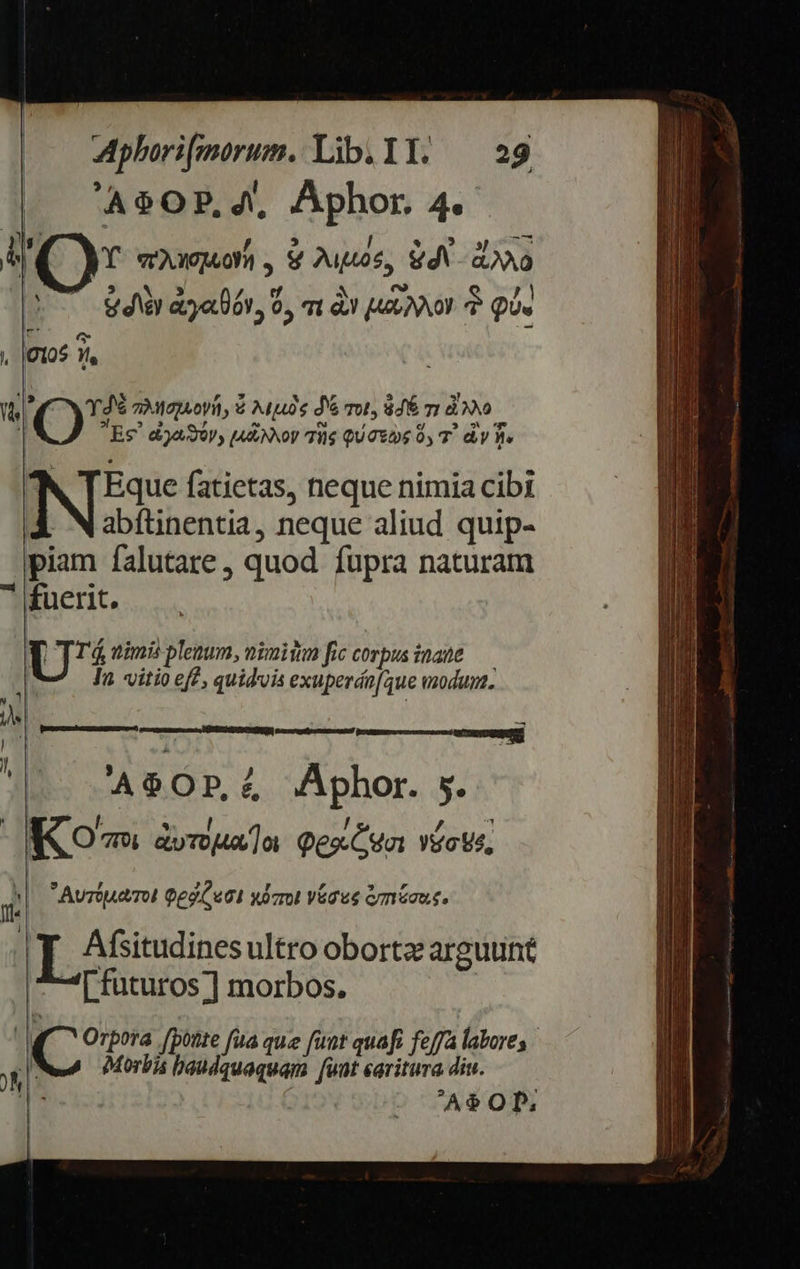 Aphoriſmorum. Lib. II. 29
ἈΦΟΡ. Δ. Aphor. 4.
ΟΥ πλησμονὴ, ȣ̓ λιμὸς, ȣ̓δ' ἄλλο
ȣ̓δὲν ἀγαθόν, ὅ, τι ἂν μᾶλλον τ̃ φύ-
σιος ᾖ.
ΟΥδὲ πλησμονὴ, ȣ̓ λιμὸς δέ τοι, ȣ̓δέ τι ἄλλο
Ἐς' ἀγαθόν, μᾶλλον τῆς φύσεως ὅ, τ' ἂν ᾖ.
NEque ſatietas, neque nimia cibi
abſtinentia, neque aliud quip-
piam ſalutare, quod ſupra naturam
fuerit.
UTá, nimis plenum, nimiùm ſic corpus inane
In vitio eſt, quidvis exuperánſque modum.
ἈΦΟΡ. έ. Aphor. 5.
ΚΟποι ἀυτόμαλοι φράζȣσι νόσȣς.
Ἀυτόματοι φράζȣσι κόποι νόσȣς ὀπίσως.
LAſsitudines ultro obortæ arguunt
[futuros] morbos.
COrpora ſponte ſua quæ ſunt quaſi feſſa labore,
Morbis haudquaquam ſunt caritura diu.
ἈΦΟΡ.